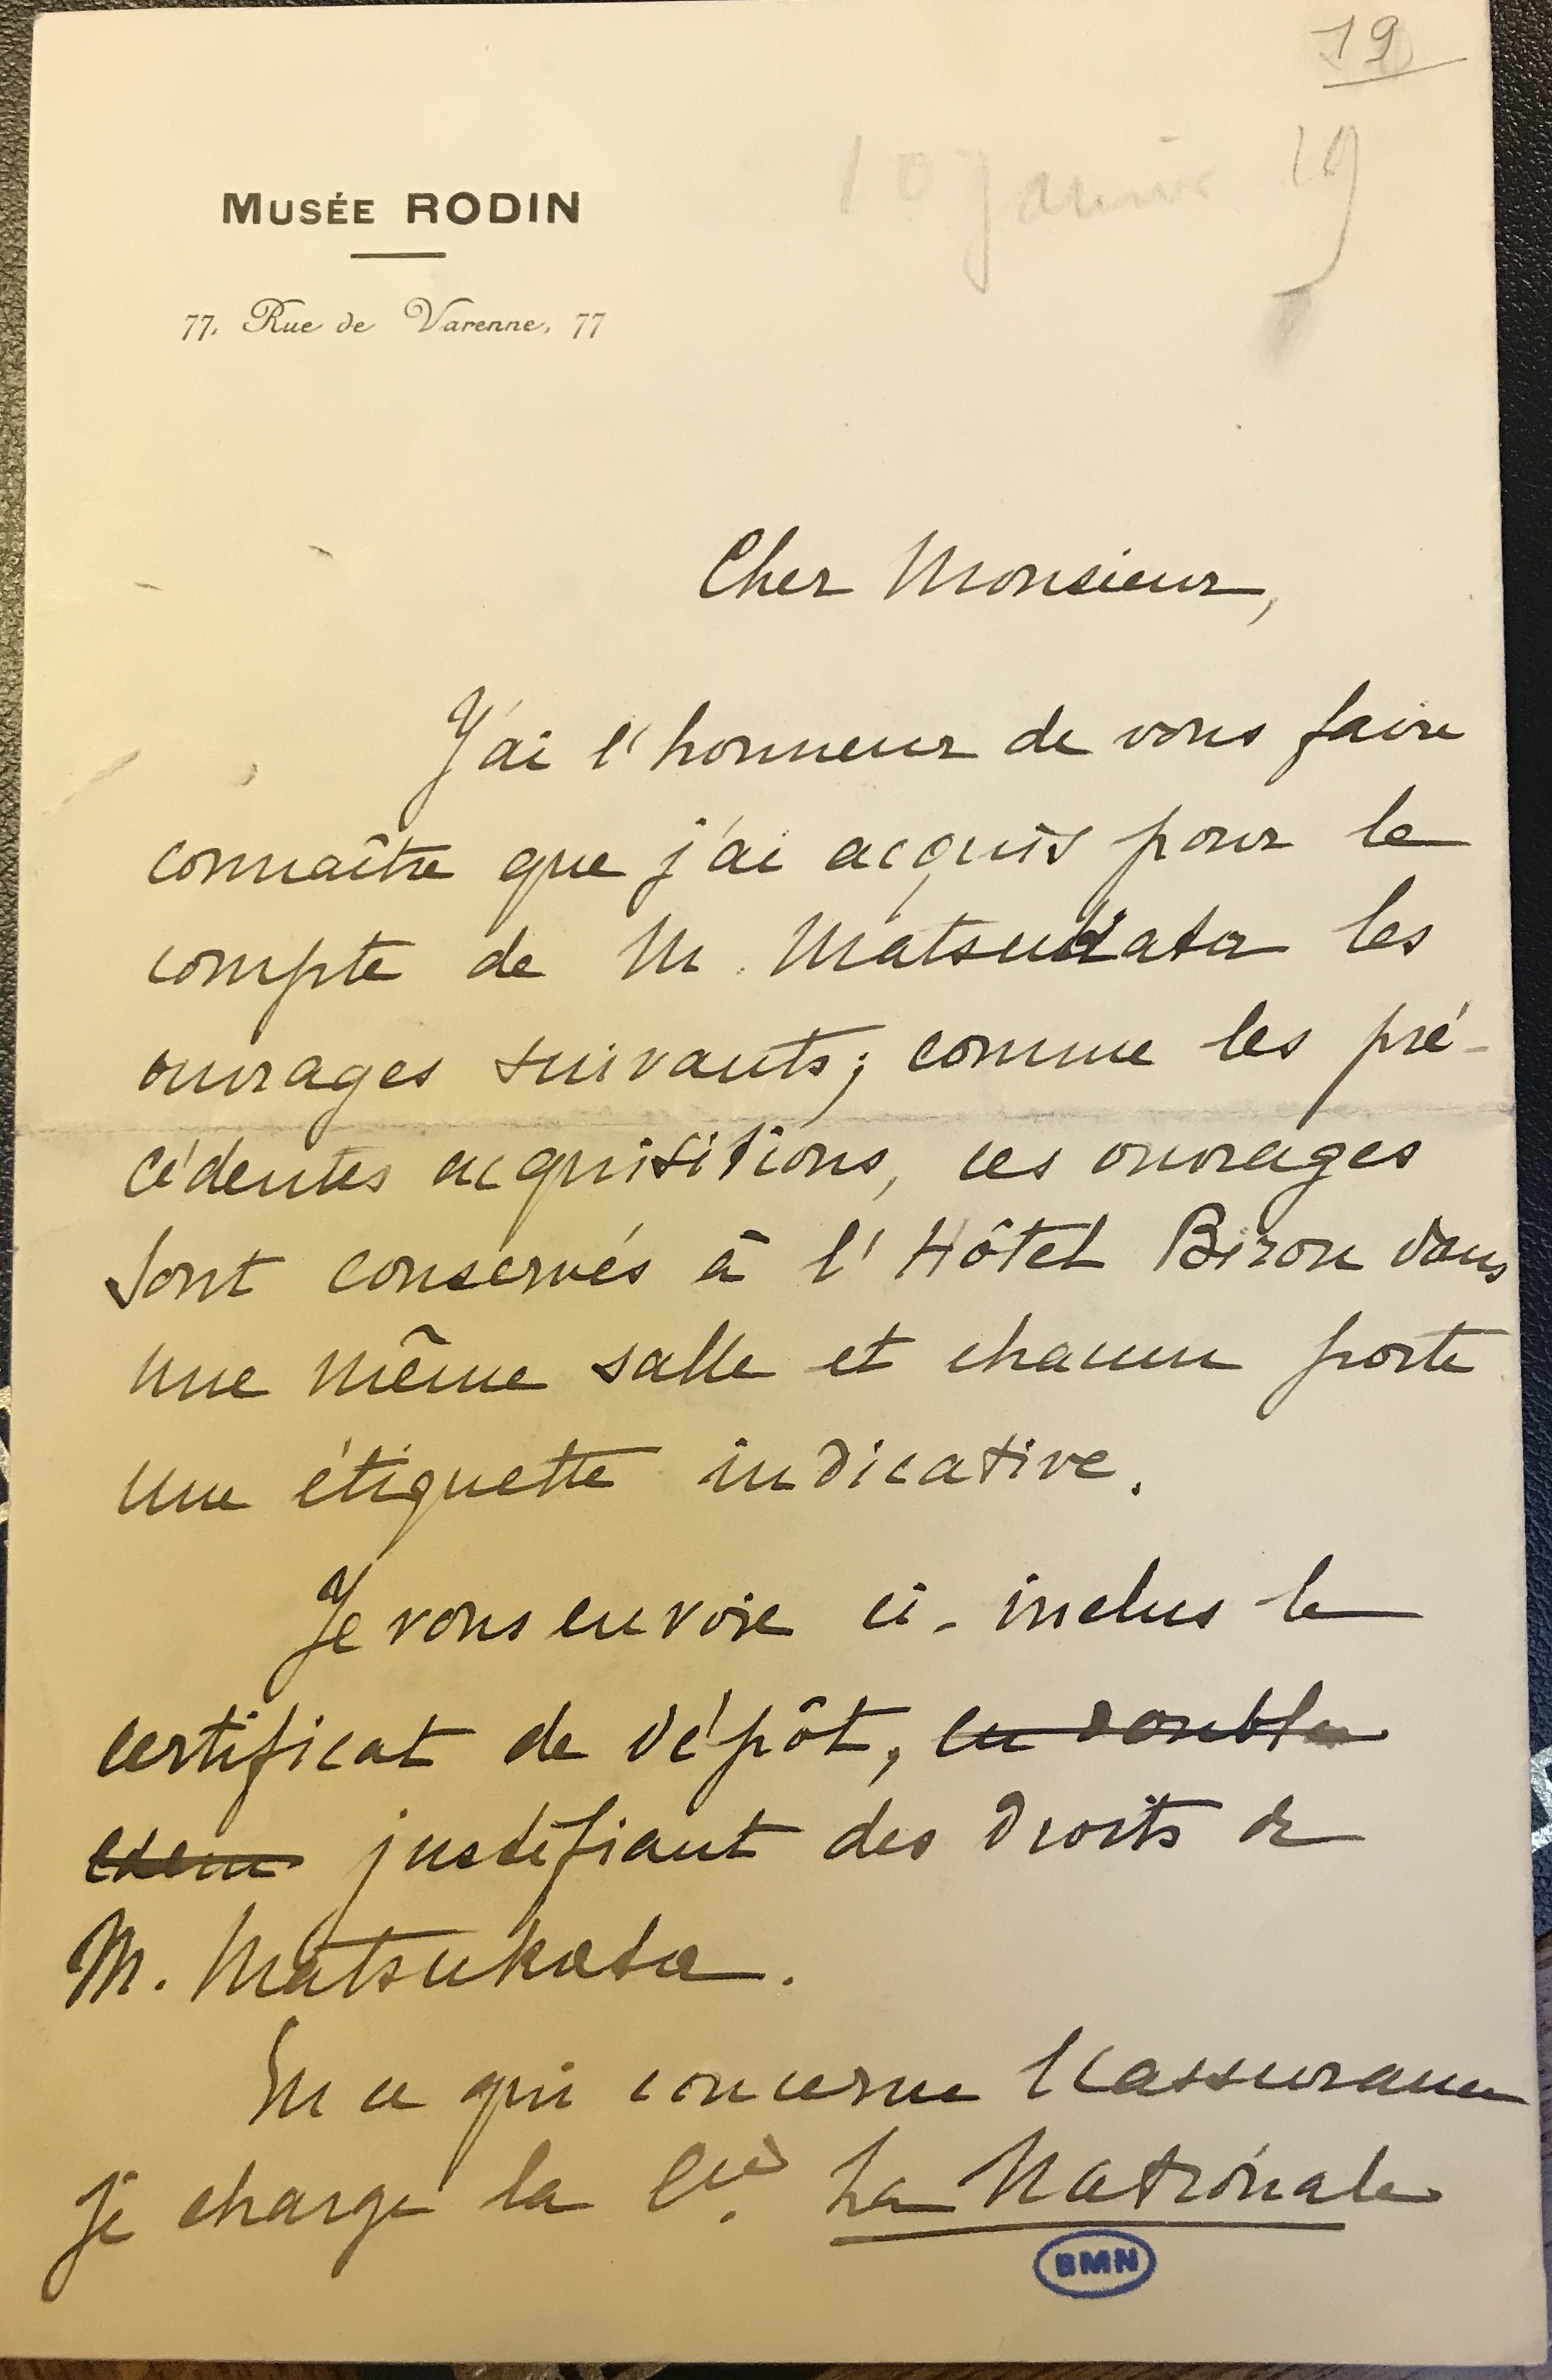 19
10 janvier 19
MUSÉE RODIN
77, Rue de Varenne, 77
Cher Monsieur,
J'ai l'honneur de vous faire
connaître que j'ai acquis pour le
compte de M. Matsukata les
ouvrages suivants; comme les pré-
cédentes acquisitions, ces ouvrages
sont conservés à l'Hôtel Biron dans
une même salle et chacun porte
une étiquette indicative.
Je vous envoie ci-inclus le
certificat de dépôt, en double
exem justifiant des droits de
M. Matsukata.
En ce qui concerne l'assurance
je charge la Cie. La Nationale
BMN